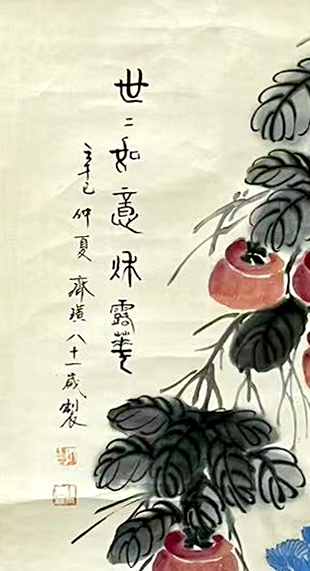 世〻如意秌露華
辛巳仲夏齊璜八十一歲製